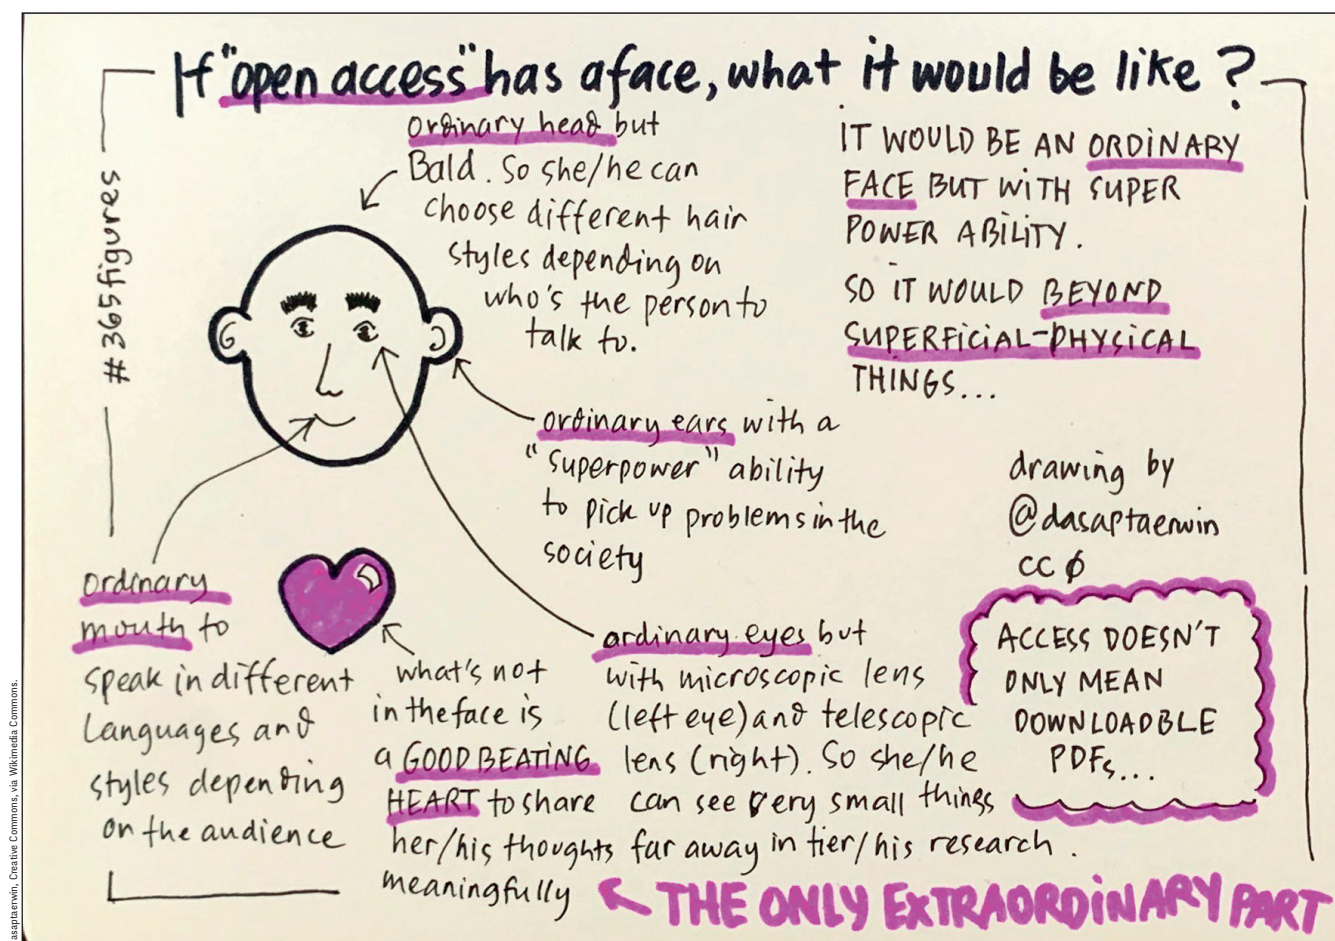 If "open access" has a face, what it would be like ?
#365figures
ordinary head but
Bald. So she/he can
choose different hair
styles depending on
who's the person to
talk to.
IT WOULD BE AN ORDINARY
FACE BUT WITH SUPER
POWER ABILITY.
SO IT WOULD BEYOND
SUPERFICIAL-PHYSICAL
THINGS...
ordinary ears with a
"superpower" ability
to pick up problems in the
society
drawing by
@dasaptaerwin
CC Ø
ordinary
mouth to
speak in different
languages and
styles depending
on the audience
what's not
in the face is
a GOOD BEATING
HEART to share
her/his thoughts
meaningfully
ordinary eyes but
with microscopic lens
(left eye) and telescopic
lens (right). So she/he
can see very small things
far away in tier/his research.
ACCESS DOESN'T
ONLY MEAN
DOWNLOADBLE
PDFs...
THE ONLY EXTRAORDINARY PART
asaptaerwin, Creative Commons, via Wikimedia Commons.